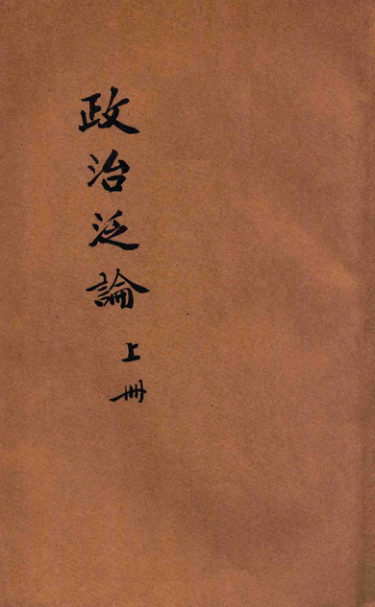 政治泛論
上冊